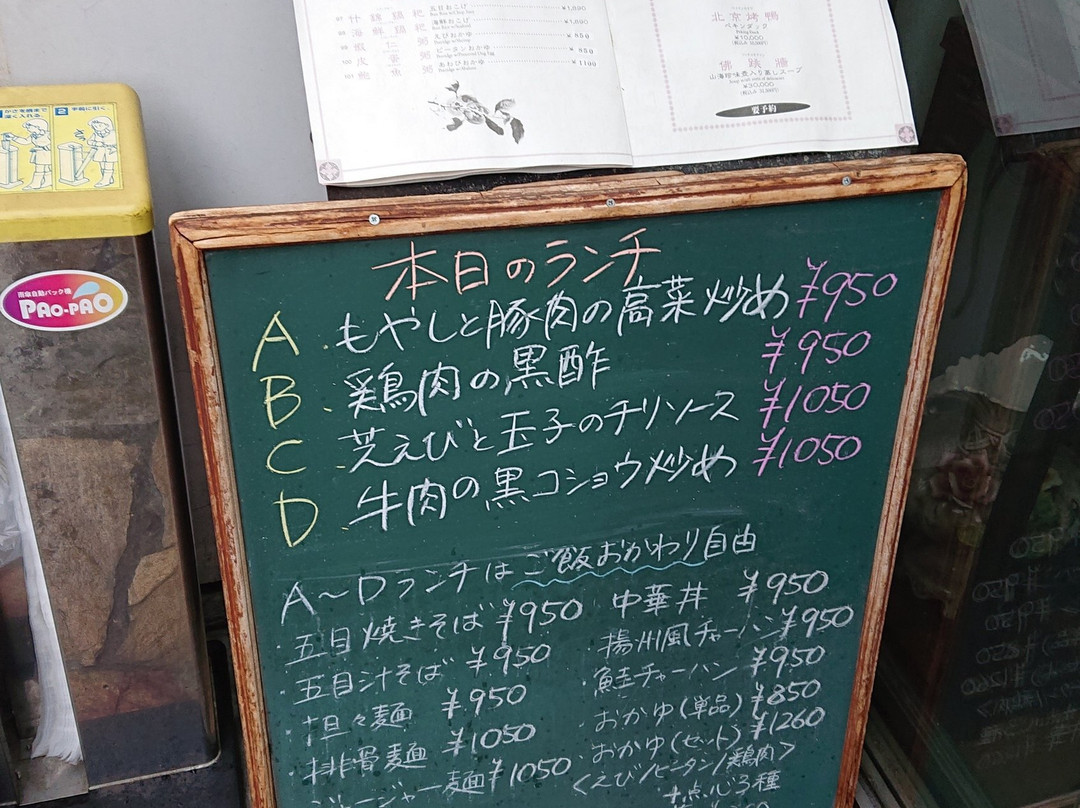 什錦鍋粑 五目おこげ ¥1,890
98 海鮮鍋粑 海鮮おこげ ¥1,890
99 蝦仁粥 えびおかゆ ¥850
100 皮蛋粥 ピータンおかゆ ¥950
101 鮑魚粥 あわびおかゆ ¥1100
北京烤鴨
ペキンダック
¥10,000
佛跳牆
山海珍味煮入り蒸しスープ
¥30,000
要予約
かさを奥まで深く入れる。
2 手前に引く。
雨傘自動パック機
PAO-PAO
本日のランチ
A. もやしと豚肉の高菜炒め ¥950
B. 鶏肉の黒酢 ¥950
C. 芝えびと玉子のチリソース ¥1050
D. 牛肉の黒コショウ炒め ¥1050
A～Dランチはご飯おかわり自由
・五目焼きそば ¥950
・五目汁そば ¥950
・担々麺 ¥950
・排骨麺 ¥1050
ジャージャー麺 ¥1050
中華丼 ¥950
揚州風チャーハン ¥950
・鮭チャーハン ¥950
・おかゆ(単品) ¥850
・おかゆ(セット) ¥1260
<えび/ピータン/鶏肉>
+点心3種